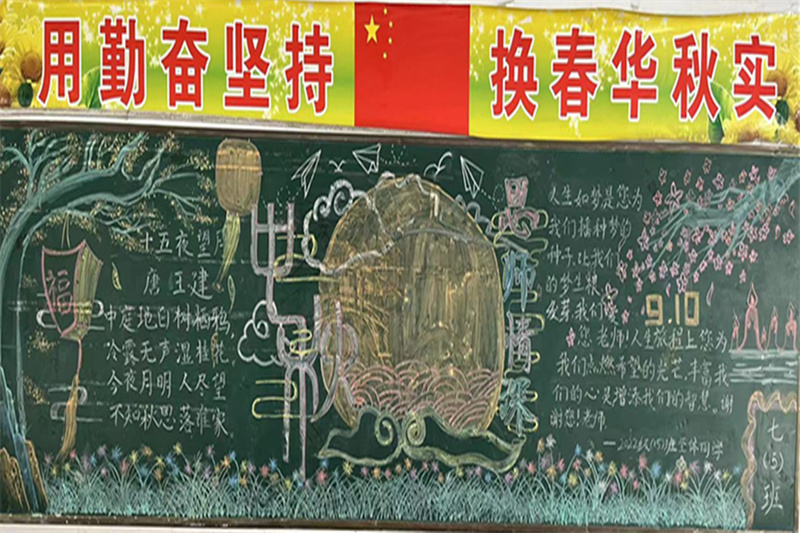 用勤奋坚持 换春华秋实
十五夜望月
唐 王建
中庭地白树栖鸦
冷露无声湿桂花
今夜月明人尽望
不知秋思落谁家
福
秋
恩师情深
人生如梦是您为
我们播种梦的
种子,让我们
的梦生根
发芽我们
9.10
您 老师!人生旅程上您为
我们点燃希望的光芒,丰富我
们的心灵增添我们的智慧。谢
谢您!老师
—2022级(5)班全体同学
七(5)班